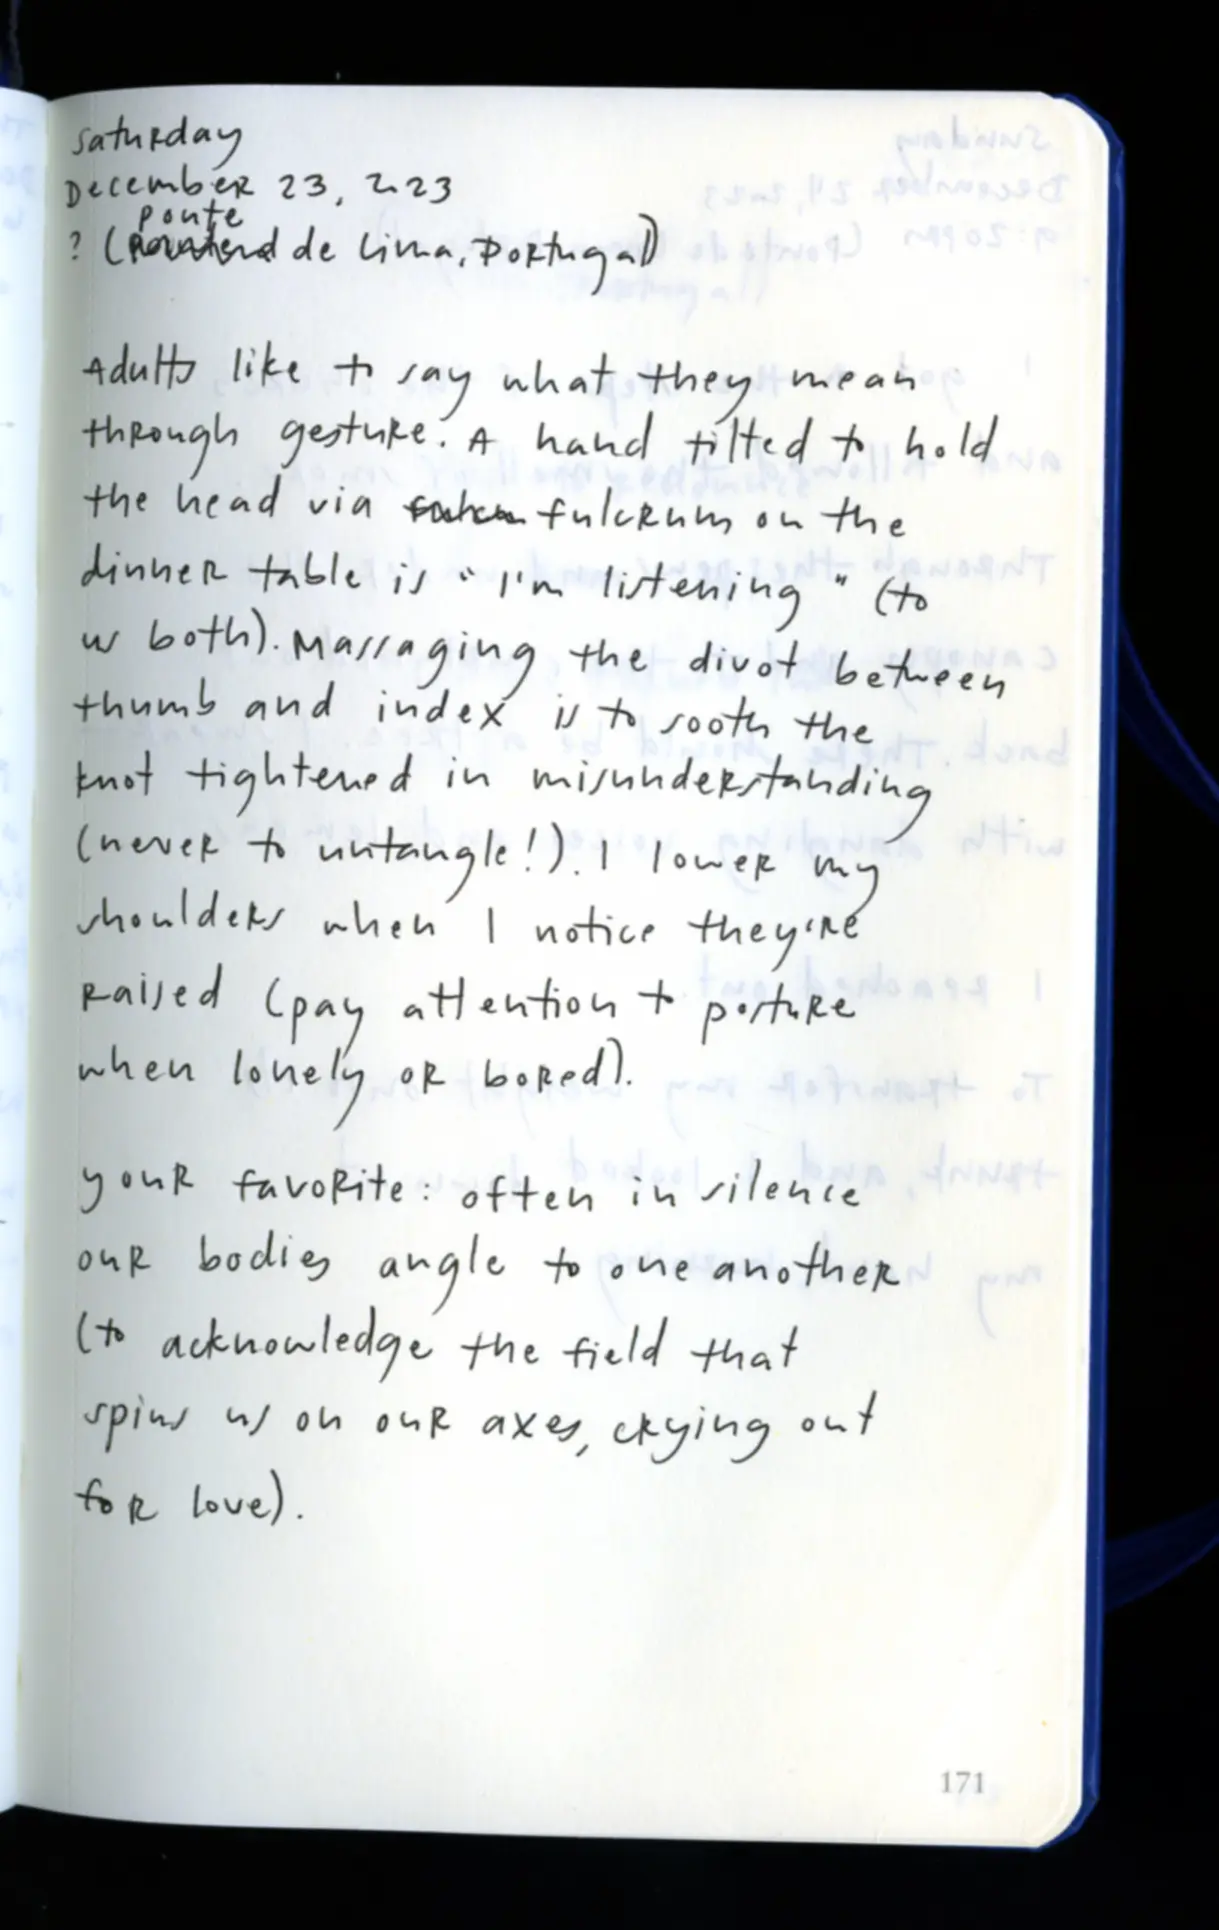 Saturday
December 23, 2023
Ponte
? ( de Lima, Portugal)
Adults like to say what they mean
through gesture. A hand tilted to hold
the head via fulcrum on the
dinner table is "I'm listening" (to
us both). Massaging the divot between
thumb and index is to sooth the
knot tightened in misunderstanding
(never to untangle!). I lower my
shoulders when I notice they're
raised (pay attention to posture
when lonely or bored).
your favorite: often in silence
our bodies angle to one another
(to acknowledge the field that
spins us on our axes, crying out
for love).
171